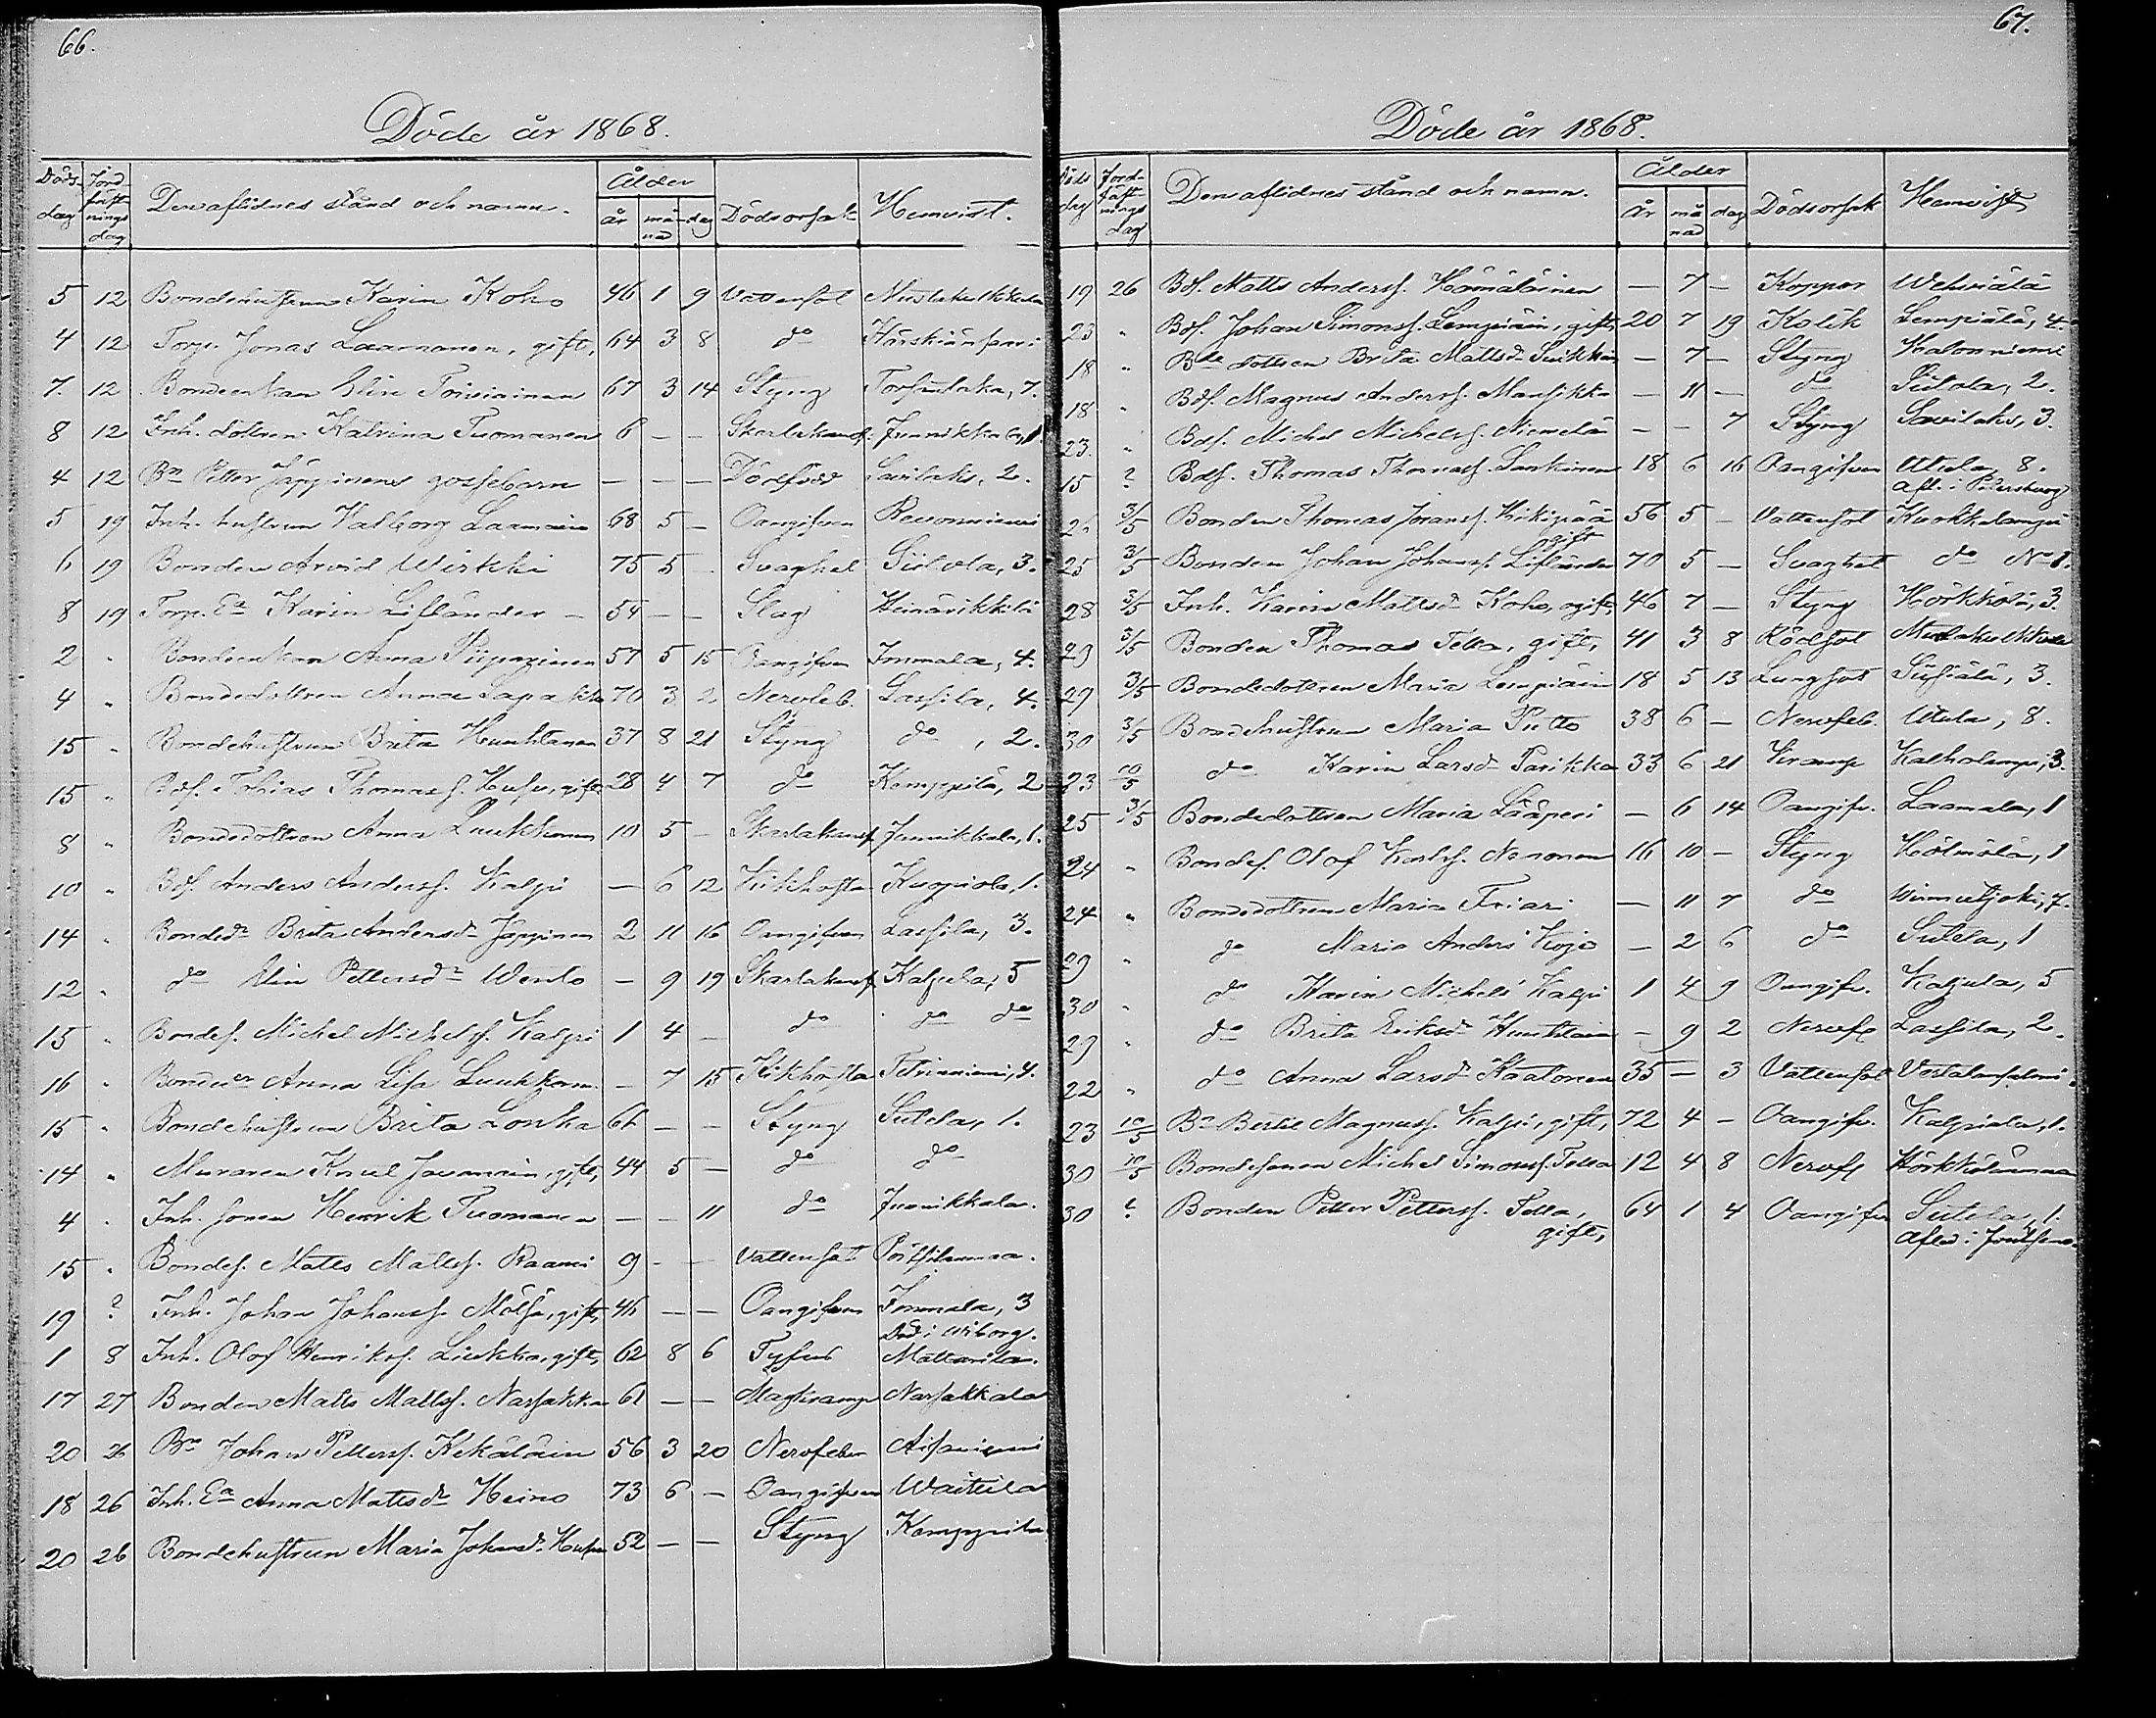 66.
Döde år 1868.
Döds-dag Jordfästnings dag Den aflidnes stånd och namn. Ålder år månad dag Dödsorsak Hemvist.
5 12 Bondehustrun Karin Koho 46 1 9 Vattensot
4 12 Torp. Jonas Laamanen, gift, 64 3 8 do
7. 12 Bondeenkan Elin Toiviainen 67 3 14 Styng 7.
8 12 Inh. dottren Katrina Tuomanen 6 — — Skarlakansf. Junikkala, 1.
4 12 Bn Petter Jäppinens gossebarn — — — Dödfödd Savilaks, 2.
5 19 Inh. hustrun Valborg Laamain 68 5 — Oangifven
6 19 Bonden Arvid Wirkki 75 5 — Svaghet Sutela, 3.
8 19 Torp. Ea Karin Liflander — 54 — — Slag Heinärikkilä
2 " Bondeenkan Anna 57 5 15 Oangifven Immala, 4.
4 " Bondedottren Anna Lapakko 70 3 2 Nervfeb. Lassila, 4.
15 " Bondehustrun Brita Huuhtanen 37 8 21 Styng do, 2.
15 " Bdf. Tobias Thomass. Husu, gift 28 4 7 do Kemppilä, 2
8 " Bondedottren Anna Luukkanen 10 5 — Skarlakansf Junikkala, 1.
10 " Bdf. Anders Anderss. Kalpi — 6 12 Kikhosta 1.
14 " Bondedr Brita Andersdr Jäppinen 2 11 16 Oangifven Lassila, 3.
12 " do Elin Pettersdr Wento — 9 19 Skarlakansf Kalpula, 5
15 " Bondes. Michel Michelss. Kalpi 1 4 — do do do
16 " Bondedr Anna Lisa Luukkan. — 7 15 Kikhosta 4.
15 " Bondehustrun Brita Lonka 66 — — Styng Sutela, 1.
14 " Muraren Knut gift, 44 5 — do do
4 " Inh. sonen Henrik Tuomanen — — 11 do Junikkala.
15 " Bondes. Matts Mattss. Raami 9 — — Vattensot
19 ? Inh. Johan Johanss. Mölsä, gift, 46 — — Oangifven Immala, 3
Död i Wiborg.
1 8 Inh. Olof Henrikss. Liukko, gift, 62 8 6 Tyfus Mattarila.
17 27 Bonden Matts Mattss. Narsakka 61 — — Magkramp Narsakkala
20 26 Bn Johan Petterss. Kekäläin 56 3 20 Nervfeber
18 26 Inh. Ea Anna Mattsdr Heino 73 6 — Oangifven Waittila
20 26 Bondehustrun Maria Johansdr Husu 52 — — Styng Kemppilä
67.
Döde år 1868.
Döds dag Jordfästnings dag Den aflidnes stånd och namn. Ålder År månad dag Dödsorsak Hemvist
19 26 Bdf. Matts Anderss. Hämäläinen — 7 — Koppor Wehviälä
23 " Bdf. Johan Simonss. Lempiäin, gift, 20 7 19 Kolik Lempiälä, 4.
18 " Bde dottren Brita Mattsdr — 7 — Styng Kalonniemi
18 " Bdf. Magnus Anderss. Mansikka — 11 — do Sutela, 2.
23. " Bdf. Michel Michelss. Niemelä — — 7 Styng Savilaks, 3.
15 ? Bdf. Thomas Thomass. Lankinen 18 6 16 Oangifven Utula, 8.
afl. i Petersburg
26 3/5 Bonden Thomas 56 5 — Vattensot
gift
25 3/5 Bonden Johan Johanss. Liflander 70 5 — Svaghet do No 1.
28 3/5 Inh. Karin Mattsdr Koho, ogift, 46 7 — Styng Hörkkölä, 3.
29 3/5 Bonden Thomas Tella, gift, 41 3 8 Rödsot
29 3/5 Bondedottren Maria Lempiäin 18 5 13 Lungsot 3.
30 3/5 Bondehustrun Maria 38 6 — Nervfeb. Utula, 8.
23 10/5 do Karin Larsdr Parikka 33 6 21 Kramp 3.
25 3/5 Bondedottren Maria Lääperi — 6 14 Oangifv. Laamala, 1
24 " Bondes. Olof Karlss. Nenonen 16 10 — Styng Hölmölä, 1
24 " Bondedottren Maria Friari — 11 7 do 7.
29 " do Maria Anders — 2 6 do Sutela, 1
30 " do Karin Michels Kalpi 1 4 9 Oangifv. Kalpula, 5
29 " do Brita Eriksdr Huuhtain — 9 2 Nervf Lassila, 2.
22 " do Anna Larsdr 35 — 3 Vattensot
23 10/5 Bn Bertil Magnuss. Kalpi, gift, 72 4 — Oangifv. 1.
30 10/5 Bondesonen Michel Simonss. Tella 12 4 8 Nervf
30 ? Bonden Petter Petterss. Tella, 64 1 4 Oangifven Sutela, 1.
gift, Afled i